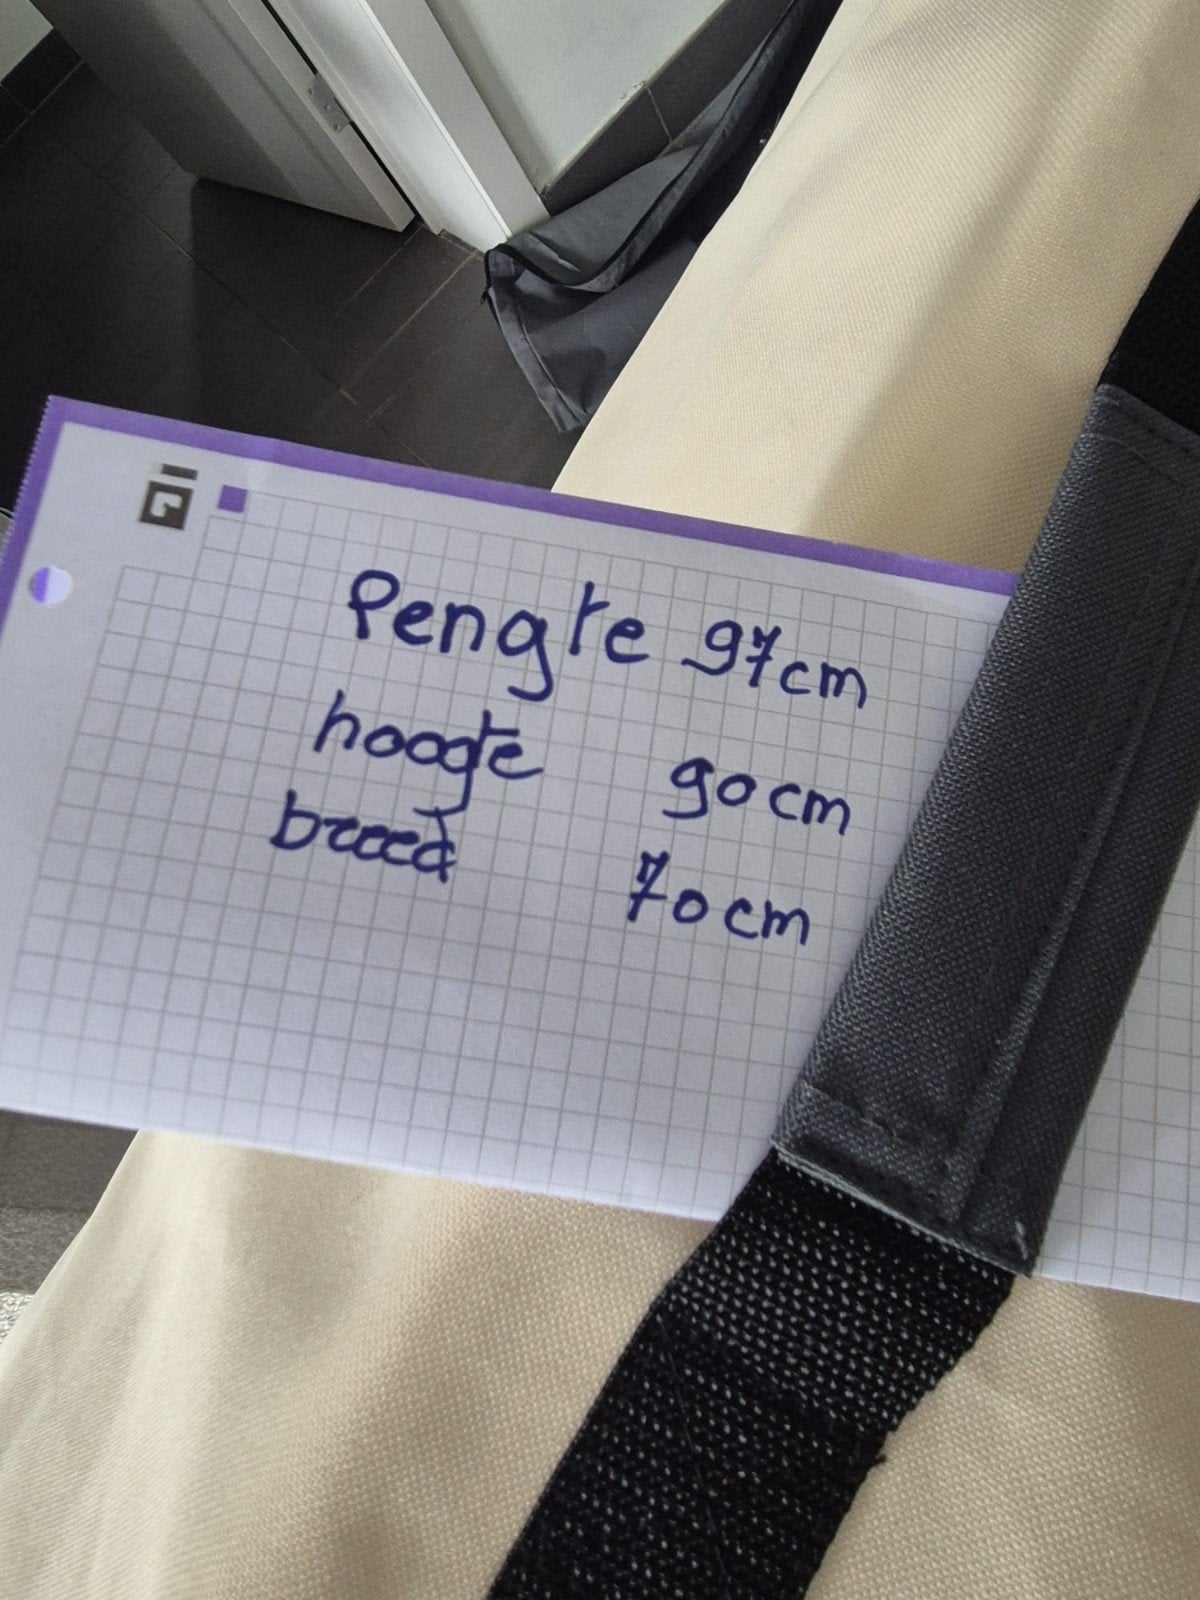 lengte 97cm
hoogte 90cm
breed 70cm